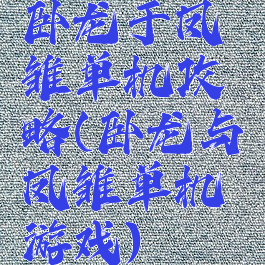 卧龙于凤
雏单机攻
略(卧龙与
凤雏单机
游戏)